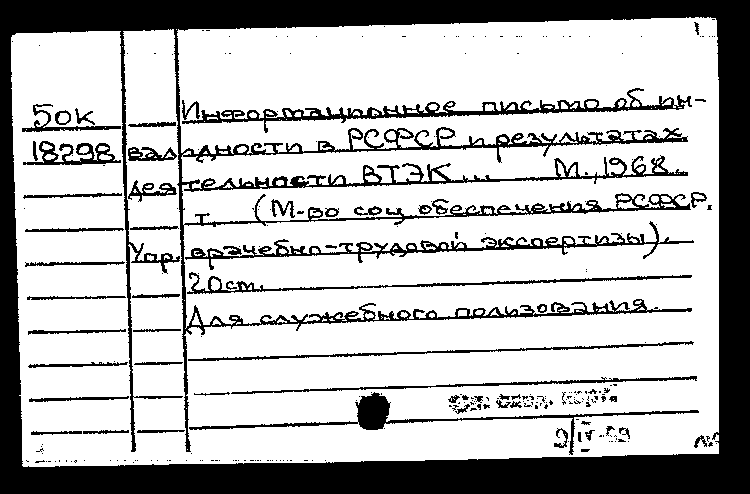 50к Информационное письмо об ин-
18298 валидности в РСФСР и результатах
деятельности ВТЭК... М., 1968.
т. (М-во соц обеспечения РСФСР.
Упр. врачебно-трудовой экспертизы).
20 cm.
Для служебного пользования.
9/IV-69